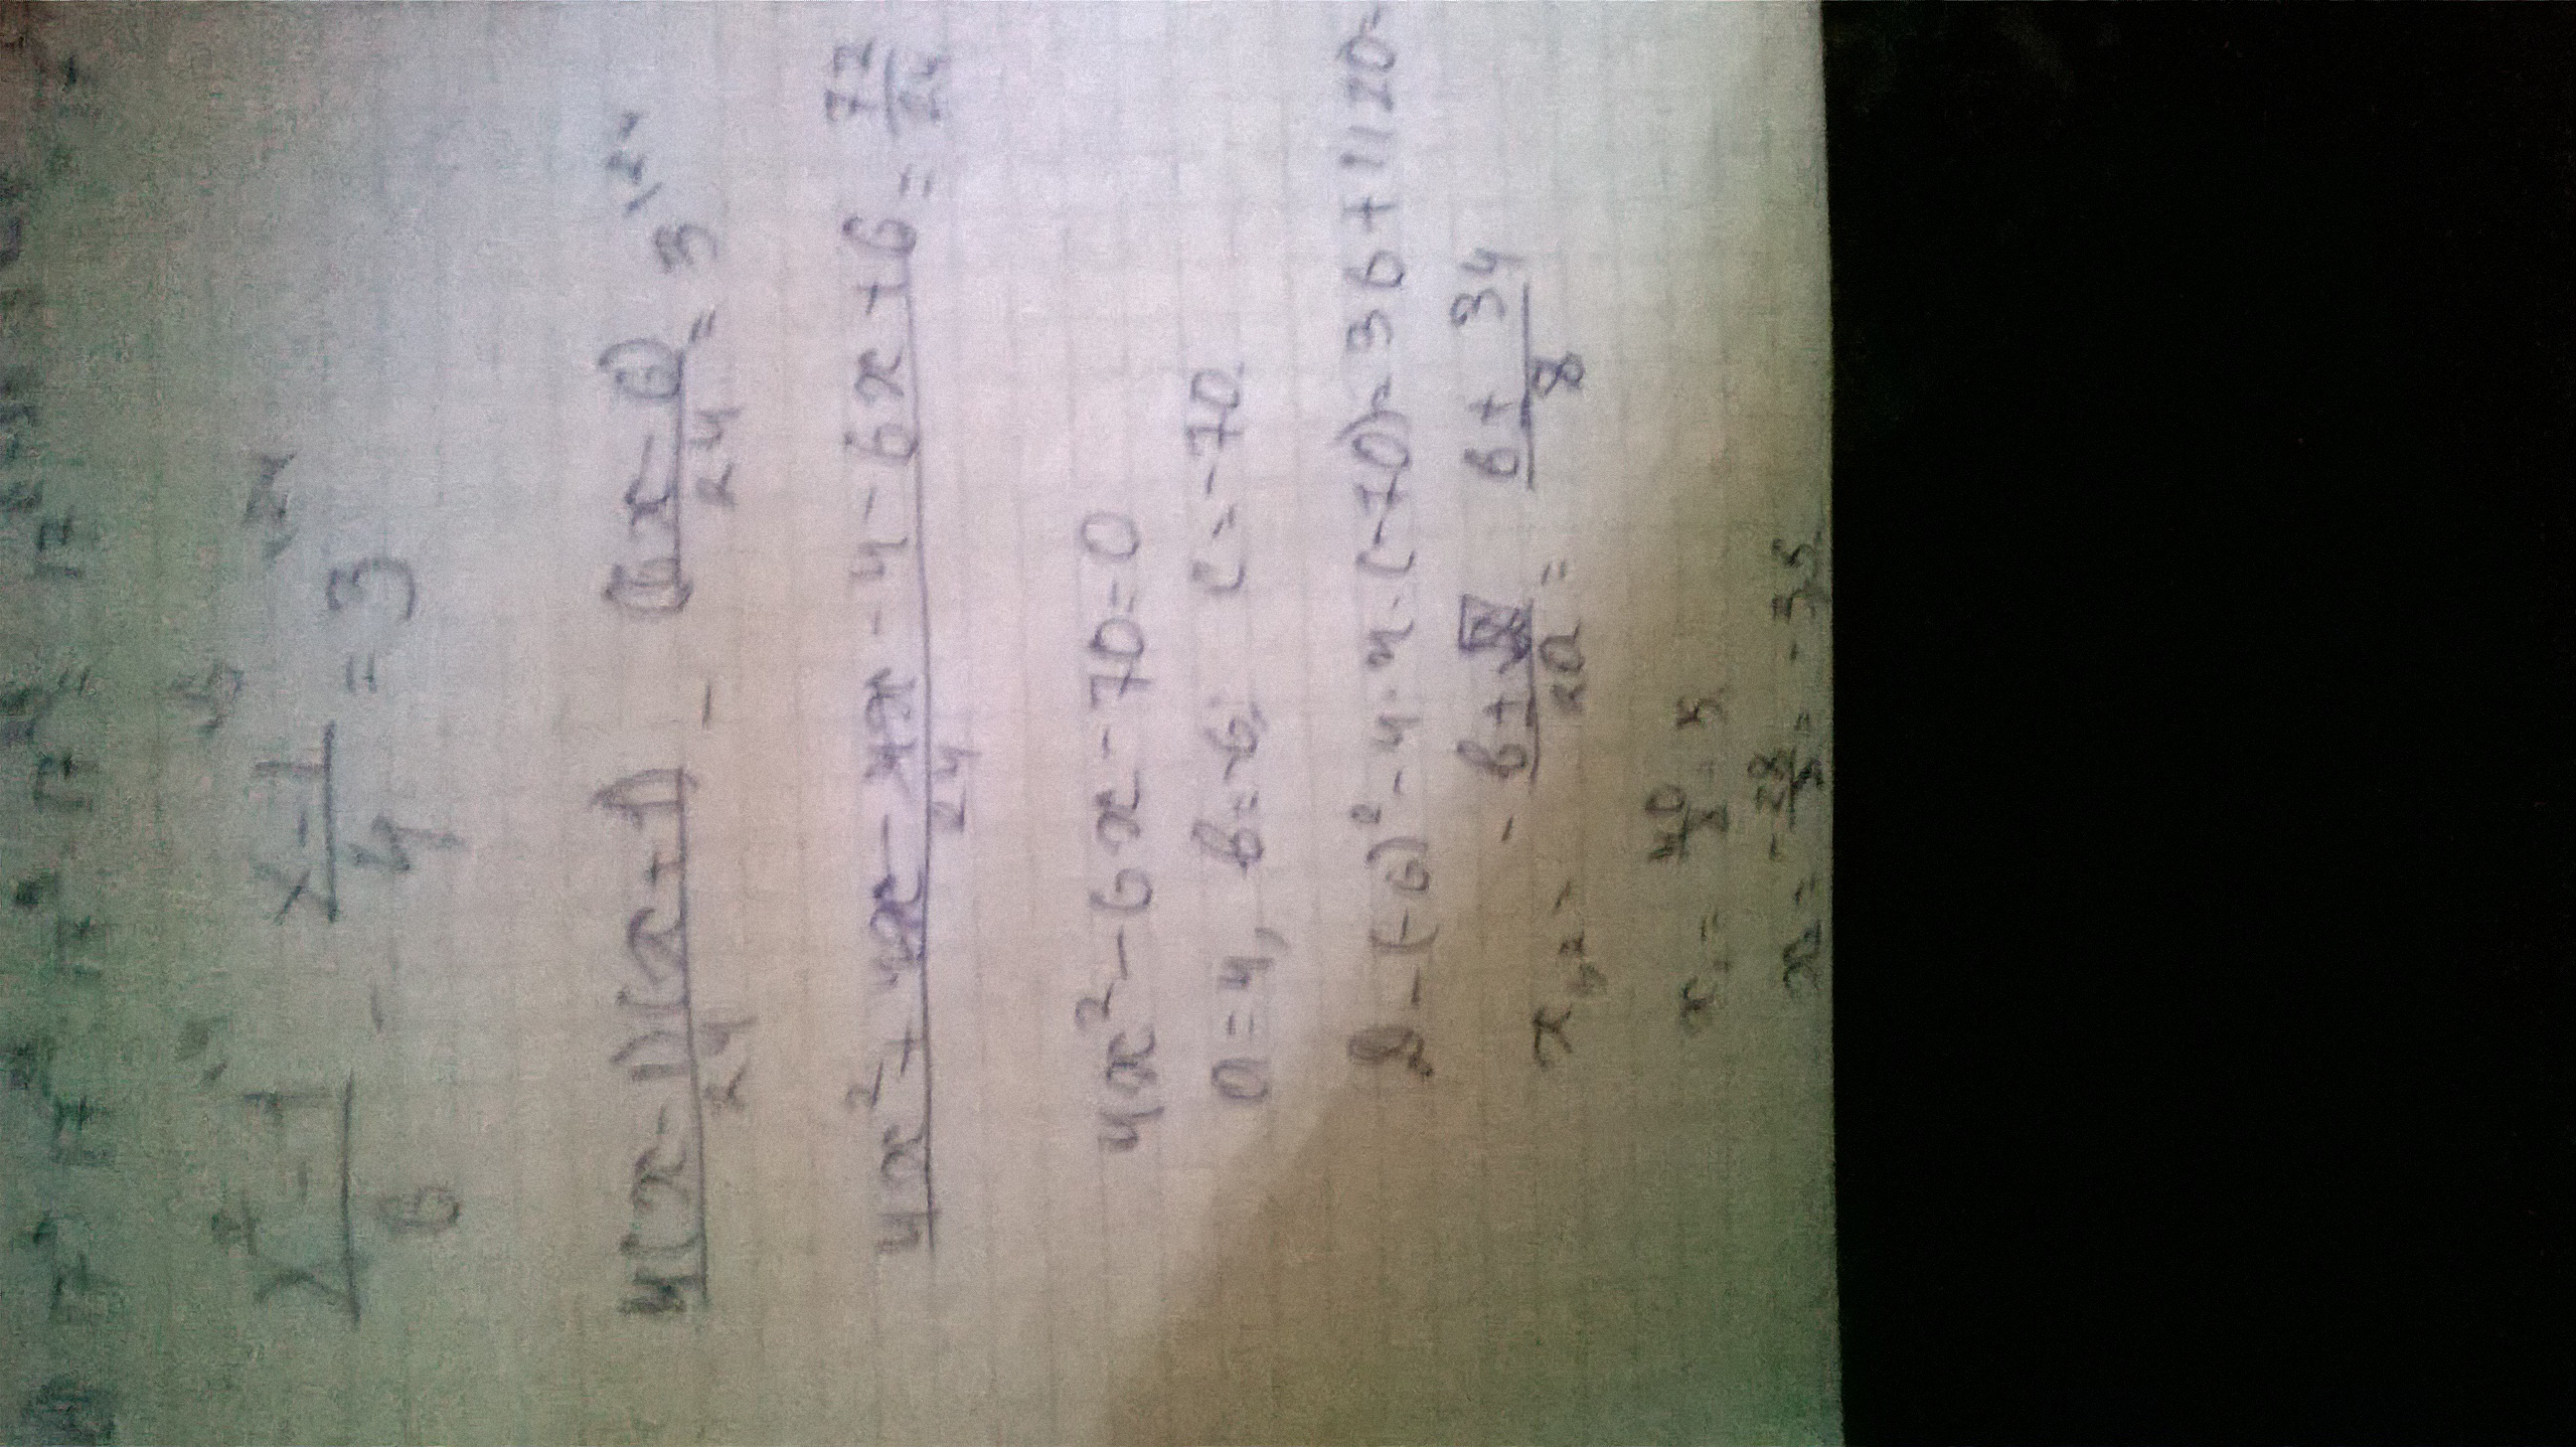 x²-1/6 - x-1/4 = 3
4(x-1)(x+1)/24 - (6x-6)/24 = 3
4x²+4x-4x-4-6x+6/24 = 72/24
4x²-6x-70=0
a=4, b=-6, c=-70
D=(-6)²-4·4·(-70)=36+1120=
x₁,₂= -b±√D/2a = 6±34/8
x₁= 40/8=5
x₂= -28/8= -3,5